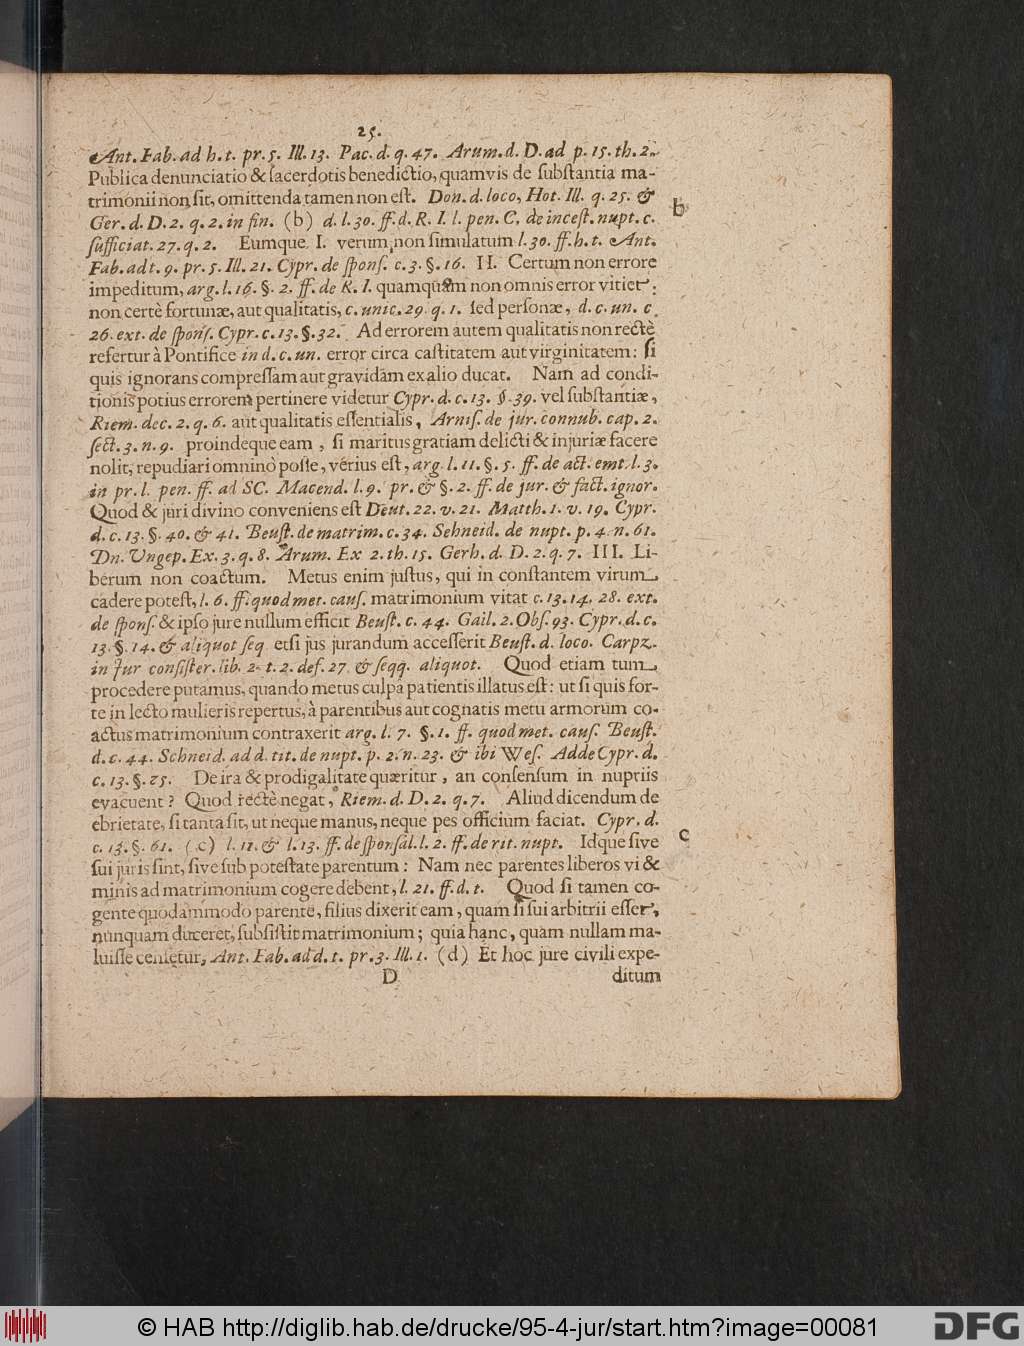 25.
Ant. Fab. ad h. t. pr. 5. Ill. 13. Pac. d. q. 47. Arum. d. D. ad p. 15. th. 2.
Publica denunciatio & sacerdotis benedictio, quamvis de substantia ma-
trimonii non sit, omittenda tamen non est. Don. d. loco, Hot. Ill. q. 25. &
Ger. d. D. 2. q. 2. in fin. (b) d. l. 30. ff. d. R. I. l. pen. C. de incest. nupt. c.
b
sufficiat. 27. q. 2. Eumque I. verum non simulatum l. 30. ff. h. t. Ant.
Fab. ad t. 9. pr. 5. Ill. 21. Cypr. de spons. c. 3. §. 16. II. Certum non errore
impeditum, arg. l. 16. §. 2. ff. de R. I. quamquam non omnis error vitiet:
non certè fortunæ, aut qualitatis, c. unic. 29. q. 1. sed personæ, d. c. un. c
26. ext. de spons. Cypr. c. 13. §. 32. Ad errorem autem qualitatis non rectè
refertur à Pontifice in d. c. un. error circa castitatem aut virginitatem: si
quis ignorans compressam aut gravidam ex alio ducat. Nam ad condi-
tionis potius errorem pertinere videtur Cypr. d. c. 13. §. 39. vel substantiæ,
Riem. dec. 2. q. 6. aut qualitatis essentialis, Arnis. de jur. connub. cap. 2.
sect. 3. n. 9. proindeque eam, si maritus gratiam delicti & injuriæ facere
nolit, repudiari omninò posse, verius est, arg. l. 11. §. 5. ff. de act. emt. l. 3.
in pr. l. pen. ff. ad SC. Macend. l. 9. pr. & §. 2. ff. de jur. & fact. ignor.
Quod & juri divino conveniens est Deut. 22. v. 21. Matth. 1. v. 19. Cypr.
d. c. 13. §. 40. & 41. Beust. de matrim. c. 34. Sehneid. de nupt. p. 4. n. 61.
Dn. Ungep. Ex. 3. q. 8. Arum. Ex 2. th. 15. Gerh. d. D. 2. q. 7. III. Li-
berum non coactum. Metus enim justus, qui in constantem virum
cadere potest, l. 6. ff. quod met. caus. matrimonium vitat c. 13. 14. 28. ext.
de spons. & ipso jure nullum efficit Beust. c. 44. Gail. 2. Obs. 93. Cypr. d. c.
13. §. 14. & aliquot seq etsi jus jurandum accesserit Beust. d. loco. Carpz.
in Jur consister. lib. 2. t. 2. def. 27. & seqq. aliquot. Quod etiam tum
procedere putamus, quando metus culpâ patientis illatus est: ut si quis for-
te in lecto mulieris repertus, à parentibus aut cognatis metu armorum co-
actus matrimonium contraxerit arg. l. 7. §. 1. ff. quod met. caus. Beust.
d. c. 44. Schneid. ad d. tit. de nupt. p. 2. n. 23. & ibi Wes. Adde Cypr. d.
c. 13. §. 25. De ira & prodigalitate quæritur, an consensum in nuptiis
evacuent? Quod rectè negat, Riem. d. D. 2. q. 7. Aliud dicendum de
ebrietate, si tanta sit, ut neque manus, neque pes officium faciat. Cypr. d.
c. 13. §. 61. (c) l. 11. & l. 13. ff. de sponsal. l. 2. ff. de rit. nupt. Idque sive
c
sui juris sint, sive sub potestate parentum: Nam nec parentes liberos vi &
minis ad matrimonium cogere debent, l. 21. ff. d. t. Quod si tamen co-
gente quodammodo parente, filius dixerit eam, quam si sui arbitrii esset,
nunquam duceret, subsistit matrimonium; quia hanc, quam nullam ma-
luisse censetur, Ant. Fab. ad d. t. pr. 3. Ill. 1. (d) Et hoc jure civili expe-
D ditum
© HAB http://diglib.hab.de/drucke/95-4-jur/start.htm?image=00081
DFG